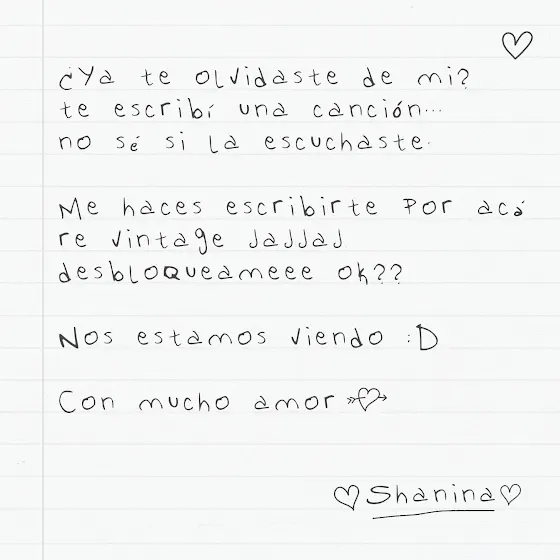 ¿Ya te olvidaste de mi?
te escribí una canción...
no sé si la escuchaste.
Me haces escribirte por acá
re vintage JaJJaJ
desbloqueameee ok??
Nos estamos viendo :D
Con mucho amor
Shanina